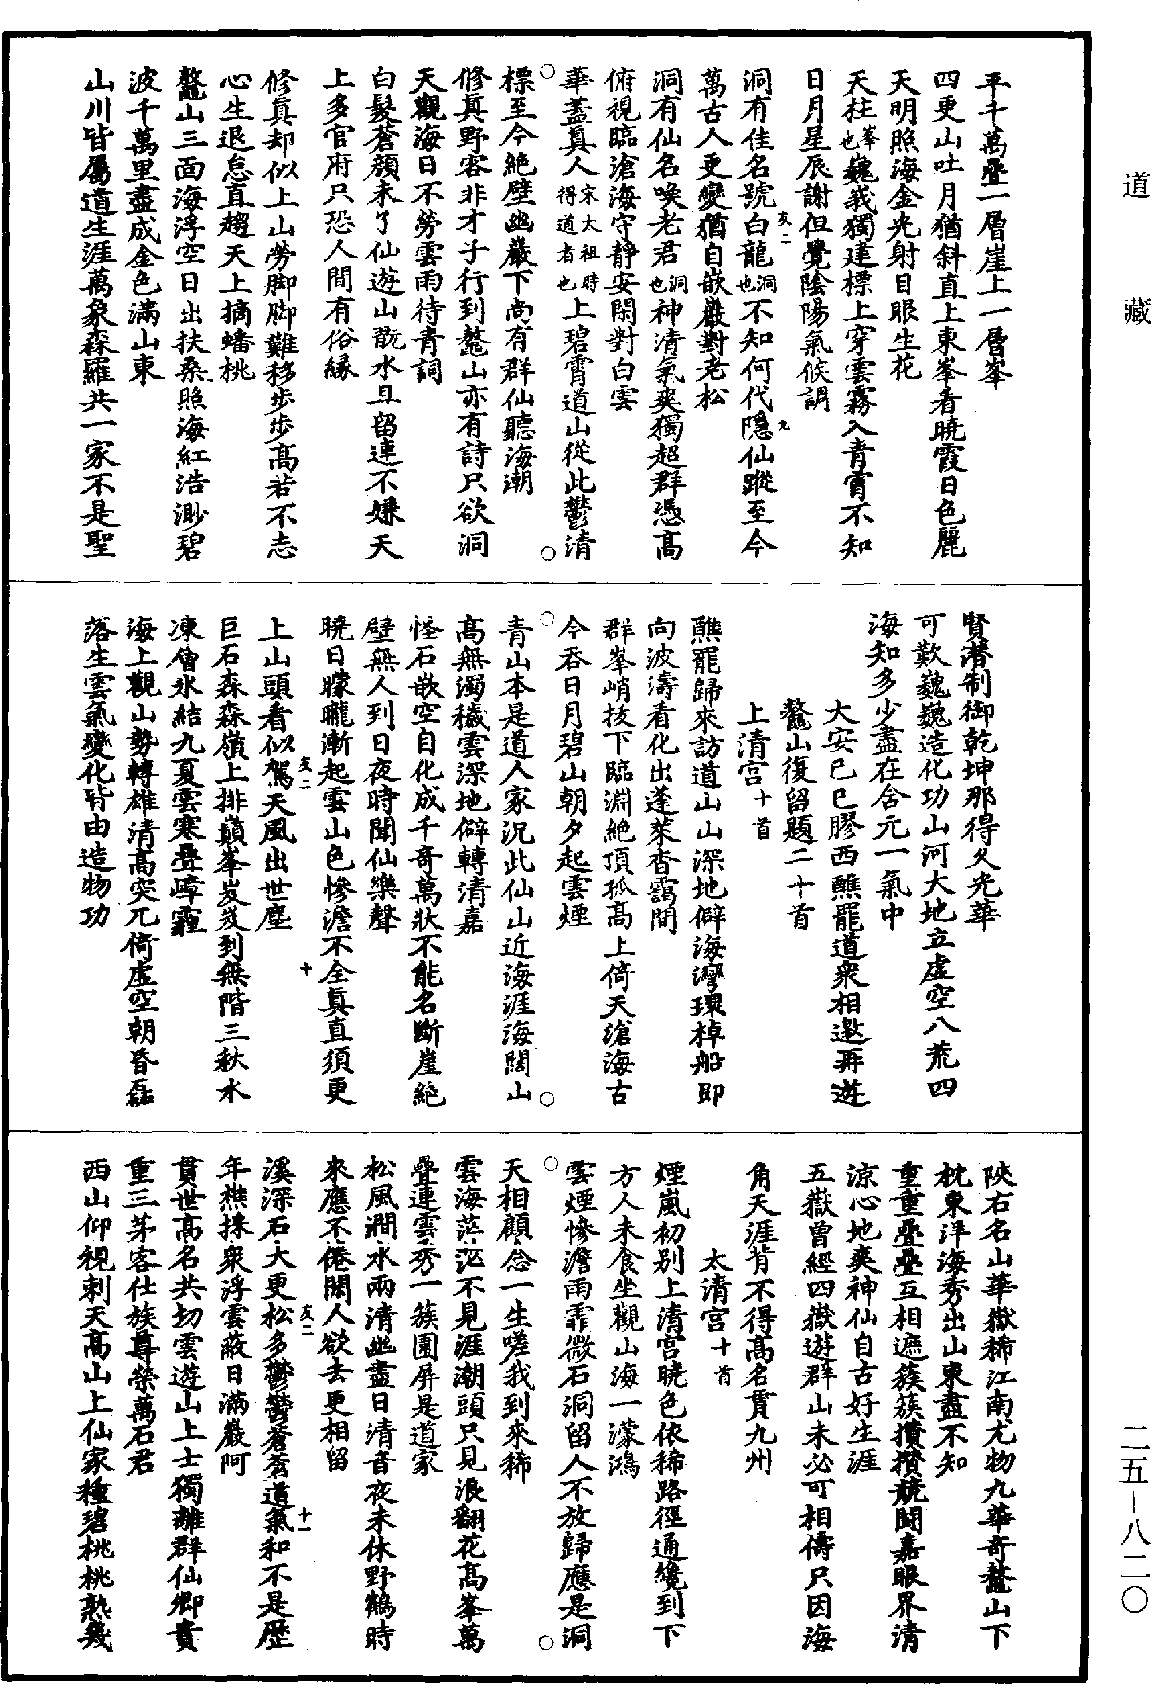 道藏
平千萬疊一層崖上一層峯
四更山吐月猶斜直上東峯看曉霞日色麗
天明照海金光射目眼生花
天柱峯也巍峩獨建標上穿雲霧入青霄不知
日月星辰謝但覺陰陽氣候調
洞有佳名號白龍洞也不知何代隱仙蹤至今
萬古人更變猶自嵌巖對老松
洞有仙名喚老君洞也神清氣爽獨超群憑高
俯視臨滄海守靜安閑對白雲
華蓋真人宋太祖時得道者也上碧霄道山從此鬱清
標至今絕壁幽巖下尚有群仙聽海潮
修真野客非才子行到鼇山亦有詩只欲洞
天觀海日不勞雲雨待青詞
白髮蒼顏未了仙遊山翫水且留連不嫌天
上多官府只恐人間有俗緣
修真却似上山勞脚脚難移步步高若不志
心生退怠直趨天上摘蟠桃
鼇山三面海浮空日出扶桑照海紅浩渺碧
波千萬里盡成金色滿山東
山川皆屬道生涯萬象森羅共一家不是聖
賢潛制御乾坤那得久光華
可歎巍巍造化功山河大地立虛空八荒四
海知多少盡在含元一氣中
大安己巳膠西醮罷道衆相邀再遊
鼇山復留題二十首
上清宮十首
醮罷歸來訪道山山深地僻海灣環棹船即
向波濤看化出蓬萊杳靄間
群峯峭拔下臨淵絕頂孤高上倚天滄海古
今吞日月碧山朝夕起雲煙
青山本是道人家況此仙山近海涯海闊山
高無濁穢雲深地僻轉清嘉
怪石嵌空自化成千奇萬狀不能名斷崖絕
壁無人到日夜時聞仙樂聲
曉日朦朧漸起雲山色慘澹不全真直須更
上山頭看似駕天風出世塵
巨石森森嶺上排巔峯岌岌到無階三秋水
凍層氷結九夏雲寒疊嶂霾
海上觀山勢轉雄清高突兀倚虛空朝昏磊
落生雲氣變化皆由造物功
陝右名山華嶽稀江南尤物九華奇鼇山下
枕東洋海秀出山東盡不知
重重疊疊互相遮簇簇攢攢競鬪嘉眼界清
涼心地爽神仙自古好生涯
五嶽曾經四嶽遊群山未必可相儔只因海
角天涯背不得高名貫九州
太清宮十首
煙嵐初別上清宮曉色依稀路徑通纔到下
方人未食坐觀山海一濛鴻
雲煙慘澹雨霏微石洞留人不放歸應是洞
天相顧念一生嗟我到來稀
雲海茫茫不見涯潮頭只見浪翻花高峯萬
疊連雲秀一簇圍屏是道家
松風澗水兩清幽盡日清音夜未休野鶴時
來應不倦閑人欲去更相留
溪深石大更松多鬱鬱蒼蒼道氣和不是歷
年樵採衆浮雲蔽日滿巖阿
貫世高名共切雲遊山上士獨離群仙鄉貴
重三茅客仕族尊榮萬石君
西山仰視刺天高山上仙家種碧桃桃熟幾
二五－八二〇